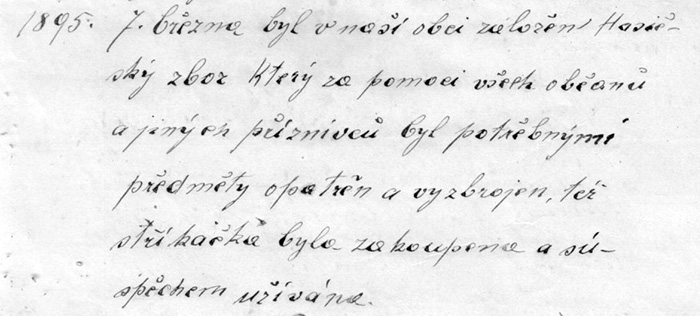 1895. 7. března byl v naší obci založen Hasič-
ský zbor Který za pomoci všech občanů
a jiných příznivců byl potřebnými
předměty opatřen a vyzbrojen, též
stříkačka byla zakoupena a sú-
spěchem užívána.